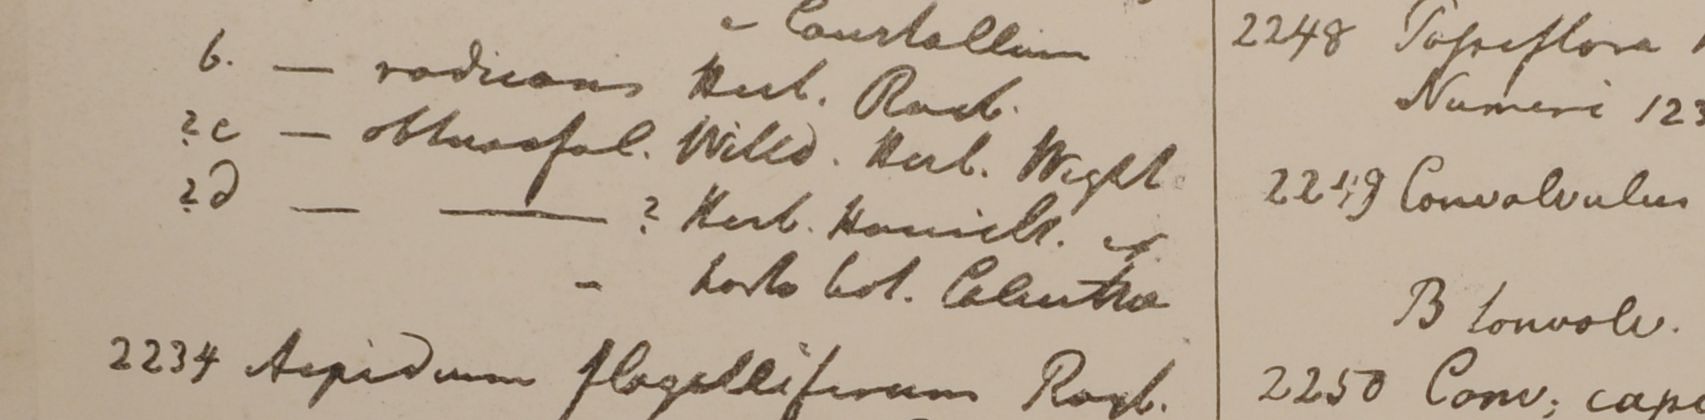 b. — radicans Herb. Roxb.
?c — obtusifol. Willd. Herb. Wight
?d — — ? Herb. Hamilt. et
- horto bot. Calcutta
2234 Aspidium flagelliferum Roxb.
2248 Passiflora
Numeri 123
2249 Convolvulus
B Convolv.
2250 Conv. cap